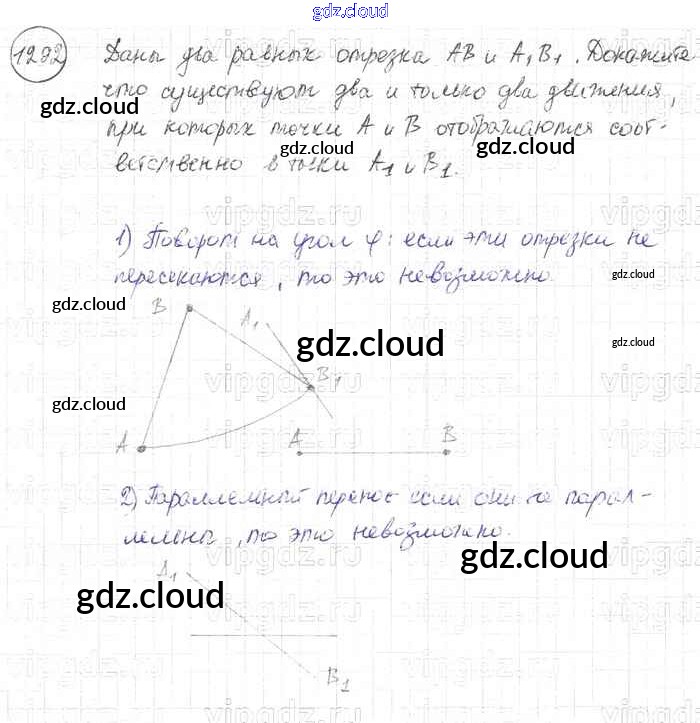 gdz.cloud
1292 Даны два равных отрезка AB и A1B1. Докажите
что существуют два и только два движения,
gdz.cloud
при которых точки A и B отображаются соот-
gdz.cloud
gdz.cloud
ветственно в точки A1 и B1.
vipgdz.ru
1) Поворот на угол φ: если эти отрезки не
пересекаются, то это невозможно.
gdz.cloud
gdz.cloud
B
A1
gdz.cloud
gdz.cloud
vipgdz.ru
B1
gdz.cloud
A
A
B
2) Параллельный перенос если они не парал-
лельны, то это невозможно.
gdz.cloud
A1
gdz.cloud
B1